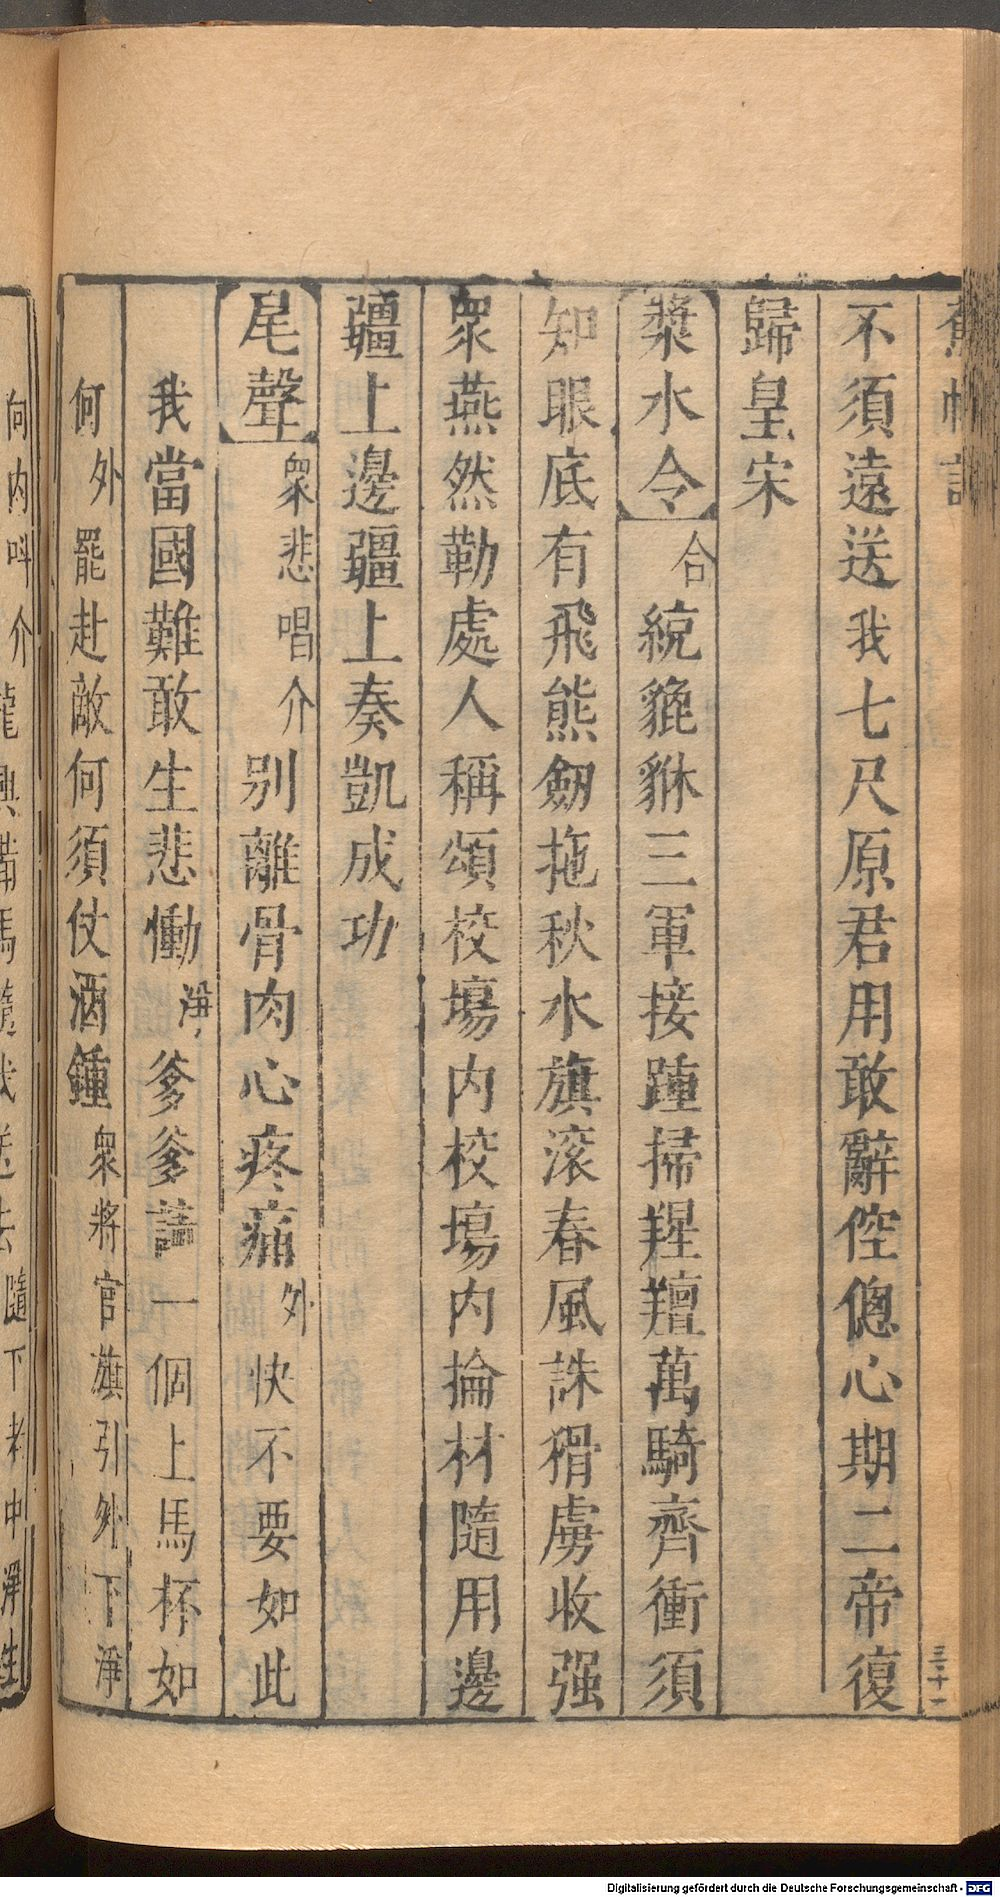 不須遠送我七尺原君用敢辭倥傯心期二帝復
歸皇宋
漿水令合統貔貅三軍接踵掃羶羶萬騎齊衝須
知眼底有飛熊劒拖秋水旗滚春風誅猾虜收强
衆燕然勒處人稱頌校塲内校塲内掄材隨用邊
疆上邊疆上奏凱成功
尾聲衆悲唱介别離骨肉心疼痛外快不要如此
我當國難敢生悲慟淨爹爹請一個上馬杯如
何外罷赴敵何須仗酒鍾衆將官旗引外下淨
向内呌介龍興備馬隨我送去隨下老中淨生
三十一
Digitalisierung gefördert durch die Deutsche Forschungsgemeinschaft - DFG